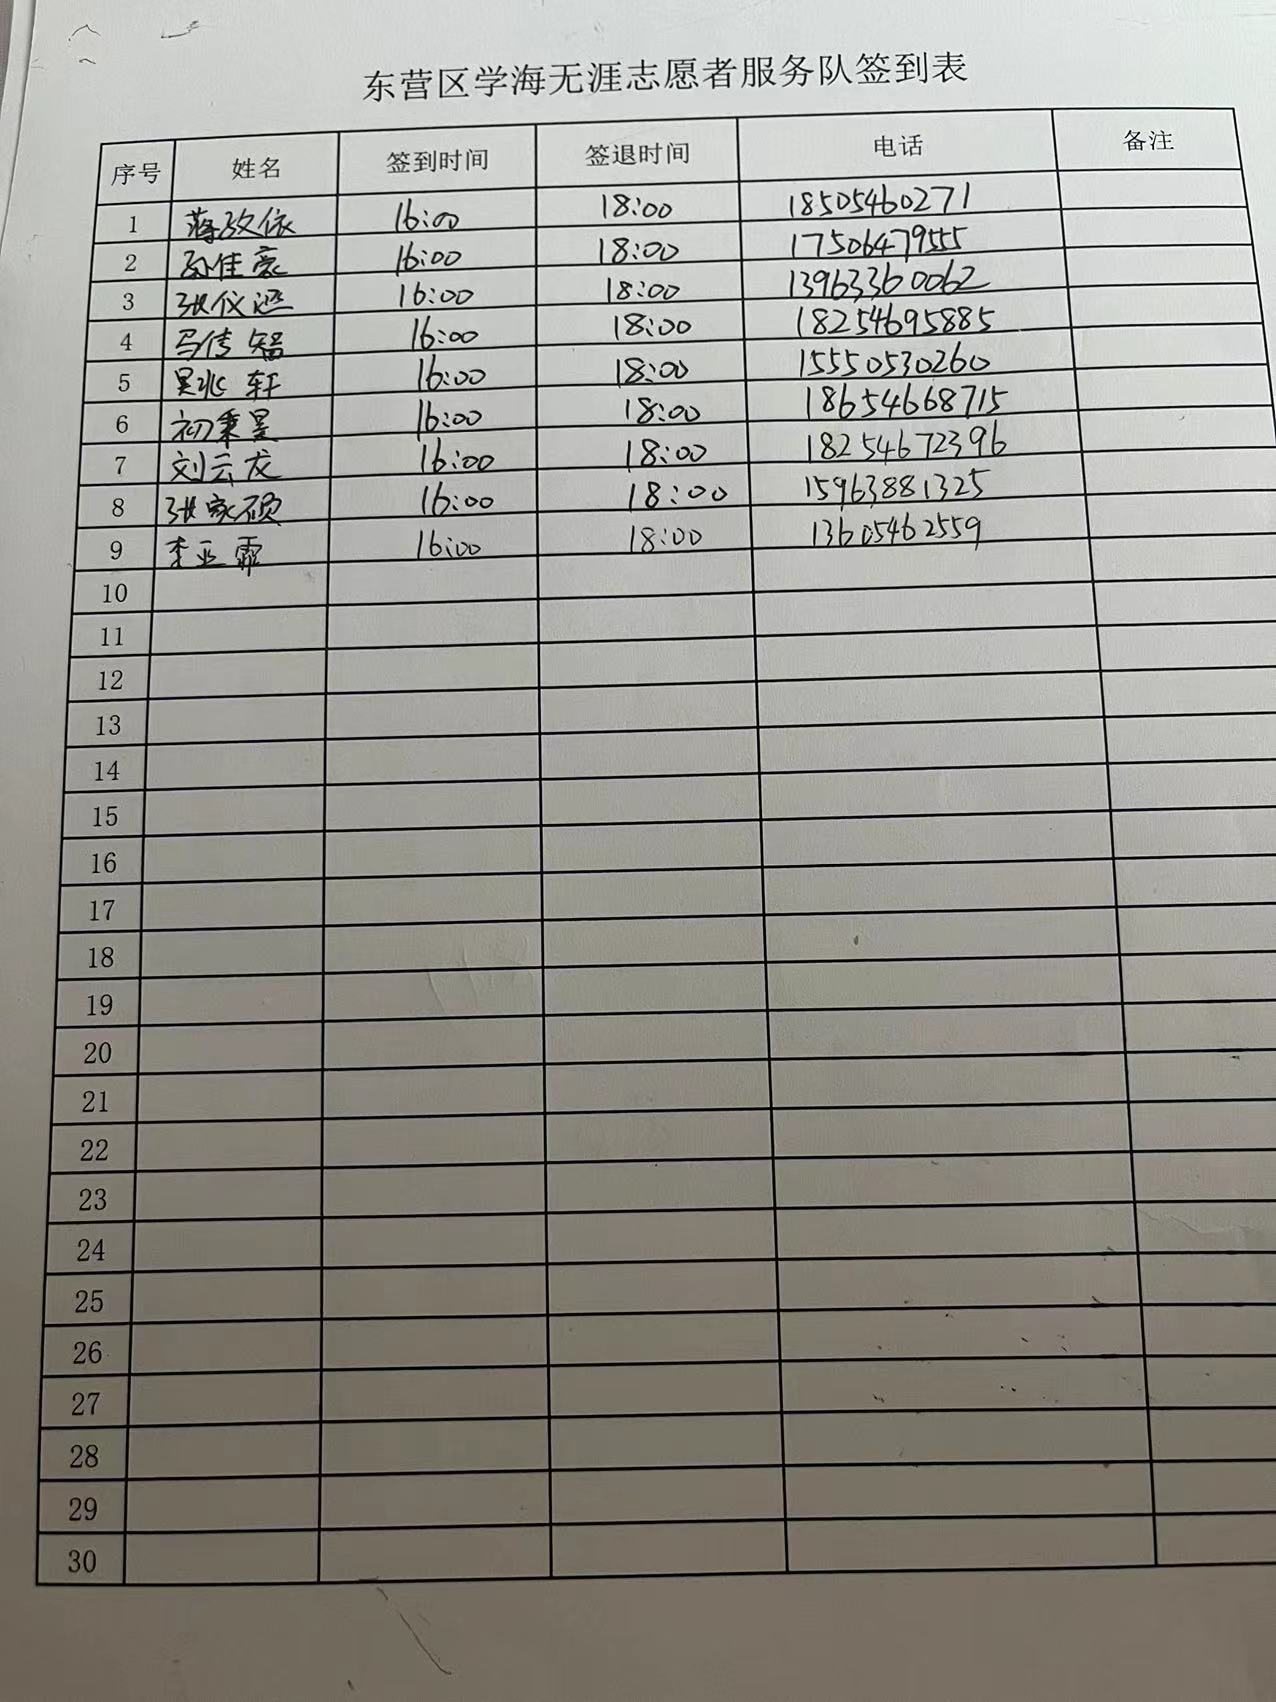 东营区学海无涯志愿者服务队签到表
序号 姓名 签到时间 签退时间 电话 备注
1 蒋玫依 16:00 18:00 18505460271
2 孙佳豪 16:00 18:00 17506479555
3 张仪涵 16:00 18:00 13963360062
4 马传智 16:00 18:00 18254695885
5 吴兆轩 16:00 18:00 15550530260
6 初秉昱 16:00 18:00 18654668715
7 刘云龙 16:00 18:00 18254672396
8 张家硕 16:00 18:00 15963881325
9 李亚霏 16:00 18:00 13605462559
10
11
12
13
14
15
16
17
18
19
20
21
22
23
24
25
26
27
28
29
30